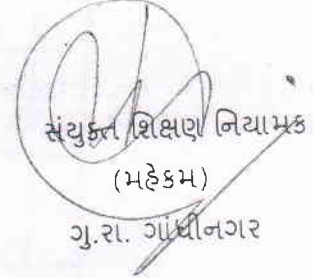 સંયુક્ત શિક્ષણ નિયામક
(મહેકમ)
ગુ.રા. ગાંધીનગર